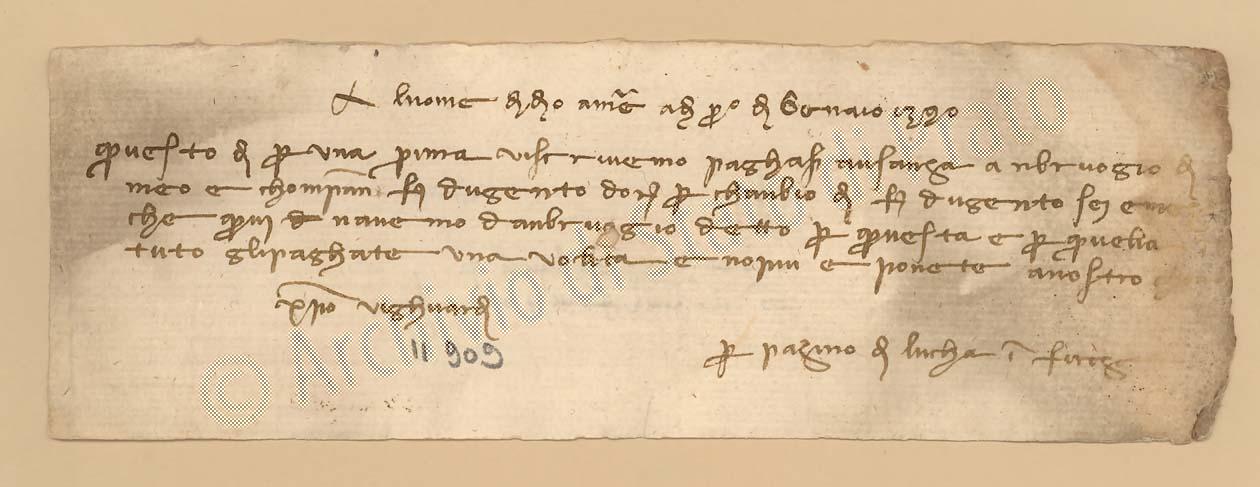 Al nome di dio amen adi pº di Gennaio 1390
questo di per una prima vi scrivemo paghasi a usanza a Anbruogio di
meo e chompan fi dugento doro per chanbio di fi dugento sei e
che qui navemo d anbruogio detto per questa e per quella
tuto gli paghate una volta e no piu e ponete a nostro
Xpo vi ghuardi
11 909
per pagino di lucha i
© Archivio di Stato di Prato